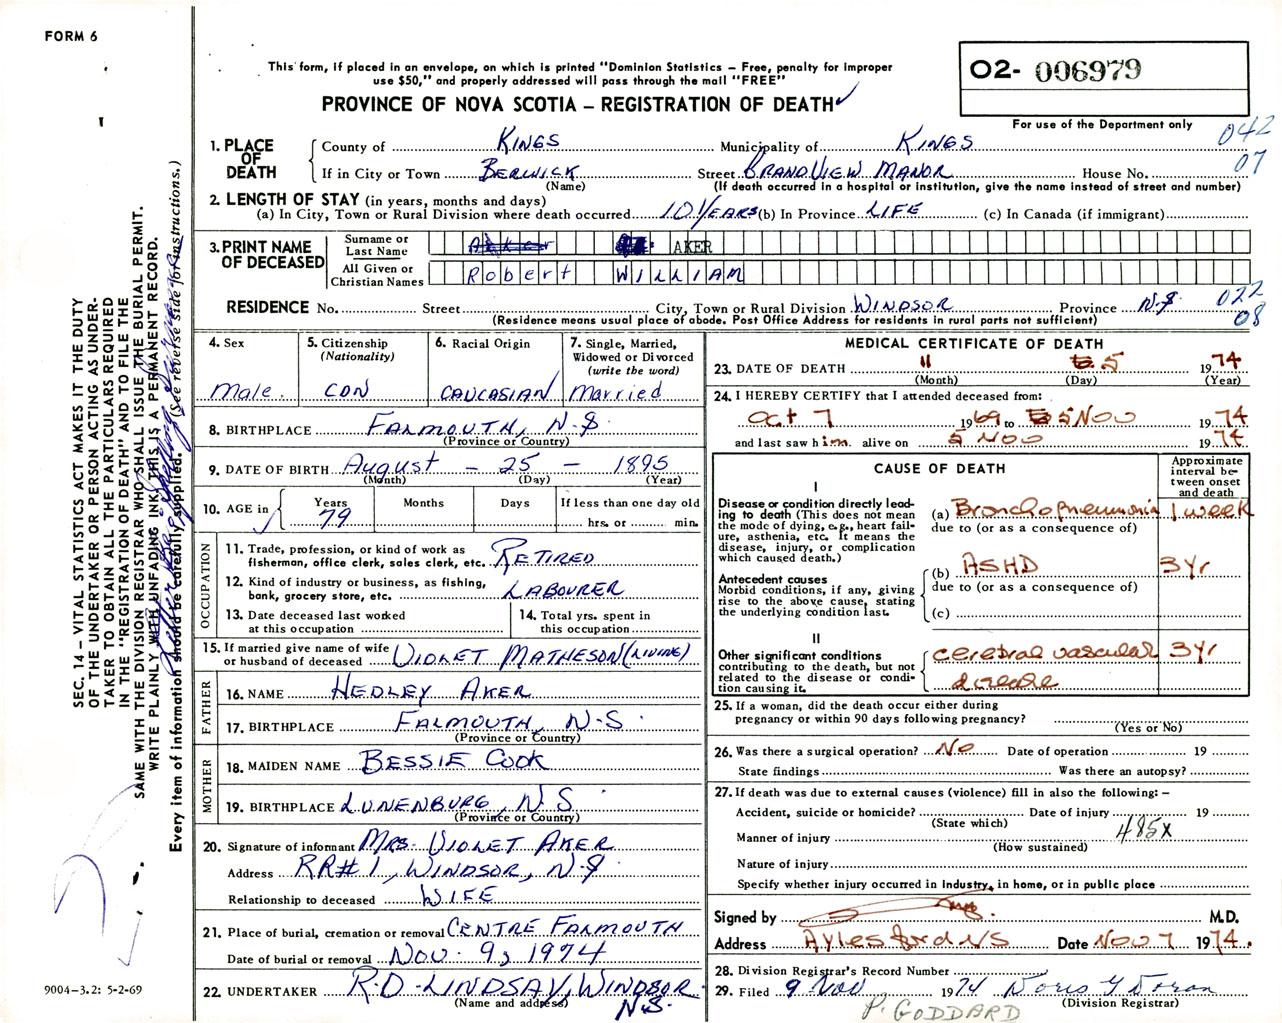 FORM 6
This form, if placed in an envelope, on which is printed "Dominion Statistics – Free, penalty for improper
use $50," and properly addressed will pass through the mail "FREE"
PROVINCE OF NOVA SCOTIA – REGISTRATION OF DEATH
O2- 006979
For use of the Department only
042
07
1. PLACE OF DEATH
County of Kings Municipality of KINGS
If in City or Town BERWICK Street GRANDVIEW MANOR House No.
(Name) (If death occurred in a hospital or institution, give the name instead of street and number)
2. LENGTH OF STAY (in years, months and days)
(a) In City, Town or Rural Division where death occurred 10 YEARS (b) In Province LIFE (c) In Canada (if immigrant)
3. PRINT NAME OF DECEASED
Surname or Last Name AKER
All Given or Christian Names Robert WILLIAM
RESIDENCE No. Street City, Town or Rural Division WINDSOR Province N.S.
022
08
(Residence means usual place of abode. Post Office Address for residents in rural parts not sufficient)
4. Sex
male.
5. Citizenship
(Nationality)
CDN
6. Racial Origin
CAUCASIAN
7. Single, Married,
Widowed or Divorced
(write the word)
Married
8. BIRTHPLACE FALMOUTH, N.S.
(Province or Country)
9. DATE OF BIRTH August – 25 – 1895
(Month) (Day) (Year)
10. AGE in
Years
79
Months
Days
If less than one day old
hrs. or min.
OCCUPATION
11. Trade, profession, or kind of work as
fisherman, office clerk, sales clerk, etc. RETIRED
12. Kind of industry or business, as fishing,
bank, grocery store, etc. LABOURER
13. Date deceased last worked
at this occupation
14. Total yrs. spent in
this occupation
15. If married give name of wife
or husband of deceased VIOLET MATHESON (LIVING)
FATHER
16. NAME HEDLEY AKER
17. BIRTHPLACE FALMOUTH, N.S.
(Province or Country)
MOTHER
18. MAIDEN NAME BESSIE COOK
19. BIRTHPLACE LUNENBURG, N.S
(Province or Country)
20. Signature of informant MRS. VIOLET AKER
Address RR# 1, WINDSOR, N.S
Relationship to deceased WIFE
21. Place of burial, cremation or removal CENTRE FALMOUTH
Date of burial or removal Nov. 9, 1974
22. UNDERTAKER R.D. LINDSAY, WINDSOR
(Name and address) N.S.
MEDICAL CERTIFICATE OF DEATH
23. DATE OF DEATH 11 5 1974
(Month) (Day) (Year)
24. I HEREBY CERTIFY that I attended deceased from:
Oct 7 1969 to 5 NOV 1974
and last saw him alive on 5 NOV 1974
CAUSE OF DEATH
Approximate
interval be-
tween onset
and death
I
Disease or condition directly lead-
ing to death (This does not mean
the mode of dying, e.g., heart fail-
ure, asthenia, etc. It means the
disease, injury, or complication
which caused death.)
(a) Bronchopneumonia 1 week
due to (or as a consequence of)
Antecedent causes
Morbid conditions, if any, giving
rise to the above cause, stating
the underlying condition last.
(b) ASHD 3 yr
due to (or as a consequence of)
(c)
II
Other significant conditions
contributing to the death, but not
related to the disease or condi-
tion causing it.
cerebral vascular 3 yr
disease
25. If a woman, did the death occur either during
pregnancy or within 90 days following pregnancy?
(Yes or No)
26. Was there a surgical operation? No Date of operation 19
State findings Was there an autopsy?
27. If death was due to external causes (violence) fill in also the following: –
Accident, suicide or homicide? Date of injury 19
(State which)
485X
Manner of injury
(How sustained)
Nature of injury
Specify whether injury occurred in Industry, in home, or in public place
Signed by M.D.
Address Aylesford NS Date NOV 7 1974.
28. Division Registrar's Record Number
29. Filed 9 Nov 1974 Doris Y Doran
(Division Registrar)
P. GODDARD
SEC. 14 – VITAL STATISTICS ACT MAKES IT THE DUTY
OF THE UNDERTAKER OR PERSON ACTING AS UNDER-
TAKER TO OBTAIN ALL THE PARTICULARS REQUIRED
IN THE "REGISTRATION OF DEATH" AND TO FILE THE
SAME WITH THE DIVISION REGISTRAR WHO SHALL ISSUE THE BURIAL PERMIT.
WRITE PLAINLY WITH UNFADING INK. THIS IS A PERMANENT RECORD.
Every item of information should be carefully supplied. (See reverse side for instructions.)
9004–3.2: 5-2-69